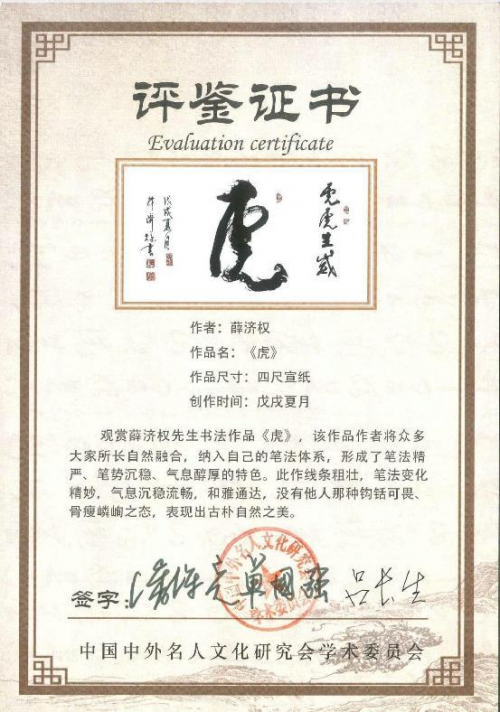 评鉴证书
Evaluation certificate
虎虎生威
虎
戊戌夏月
作者：薛济权
作品名：《虎》
作品尺寸：四尺宣纸
创作时间：戊戌夏月
观赏薛济权先生书法作品《虎》，该作品作者将众多
大家所长自然融合，纳入自己的笔法体系，形成了笔法精
严、笔势沉稳、气息醇厚的特色。此作线条粗壮，笔法变化
精妙，气息沉稳流畅，和雅通达，没有他人那种钩铦可畏、
骨瘦嶙峋之态，表现出古朴自然之美。
签字：单国强 吕长生
中国中外名人文化研究会学术委员会